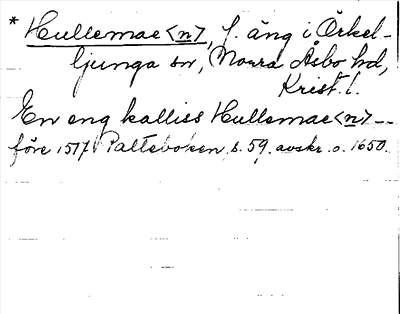 * Hullemae<n>, f. äng i Örkel-
ljunga sn, Norra Åsbo hd,
Krist. l.
En eng kalliss Hullemae<n> --
före 1517 Palteboken, s. 59, avskr. o. 1650.